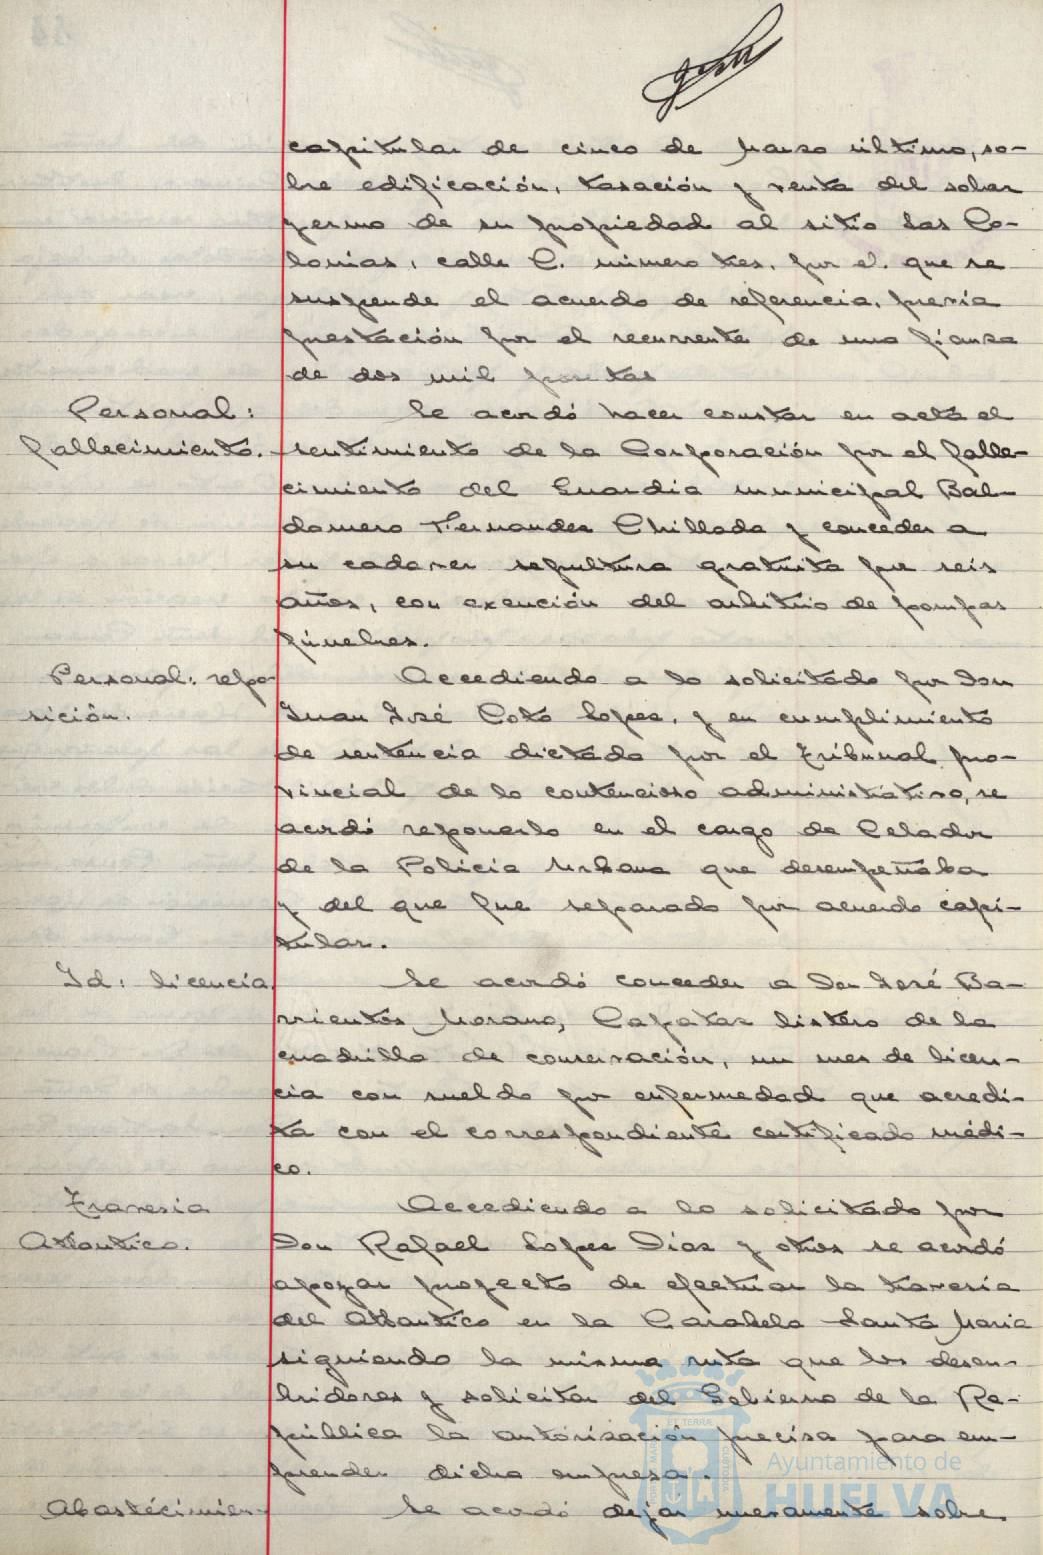 capitular de cinco de Marzo último, so-
bre edificación, tasación y venta del solar
yermo de su propiedad al sitio Las Co-
lonias, calle C. número tres, por el que se
suspende el acuerdo de referencia, previa
prestación por el recurrente de una fianza
de dos mil pesetas
Personal:
fallecimiento.
Se acordó hacer constar en acta el
sentimiento de la Corporación por el falle-
cimiento del Guardia municipal Bal-
domero Fernandez Chillada y conceder a
su cadaver sepultura gratuita por seis
años, con exención del arbitrio de pompas
fúnebres.
Personal: repo-
sición.
Accediendo a lo solicitado por Don
Juan José Coto Lopez, y en cumplimiento
de sentencia dictada por el Tribunal pro-
vincial de lo contencioso administrativo, se
acordó reponerlo en el cargo de Celador
de la Policia Urbana que desempeñaba
y del que fue separado por acuerdo capi-
tular.
Id: licencia
Se acordó conceder a Don José Ba-
rrientos Morano, Capataz listero de la
cuadrilla de conservación, un mes de licen-
cia con sueldo por enfermedad que acredi-
ta con el correspondiente certificado médi-
co.
Travesia
Atlantico.
Accediendo a lo solicitado por
Don Rafael Lopez Diaz y otros se acordó
apoyar proyecto de efectuar la travesia
del Atlantico en la Carabela Santa Maria
siguiendo la misma ruta que los descu-
bridores y solicitar del Gobierno de la Re-
pública la autorización precisa para em-
prender dicha empresa.
Abastecimien-
Se acordó dejar nuevamente sobre
Ayuntamiento de
HUELVA